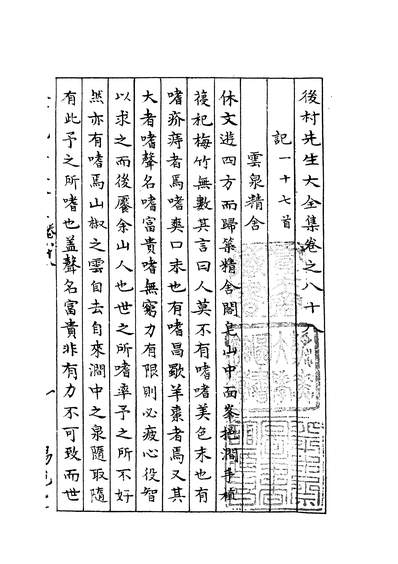 後村先生大全集卷之八十
記一十七首
雲泉精舍
休文遊四方而歸築精舍閤皂山中面峯挹澗手植
筱杞梅竹無數其言曰人莫不有嗜嗜美色末也有
嗜疥痔者焉嗜爽口末也有嗜昌歜羊棗者焉又其
大者嗜聲名嗜富貴嗜無窮力有限則必疲心役智
以求之而後饜余山人也世之所嗜率予之所不好
然亦有嗜焉山椒之雲自去自來澗中之泉隨取隨
有此予之所嗜也蓋聲名富貴非有力不可致而世